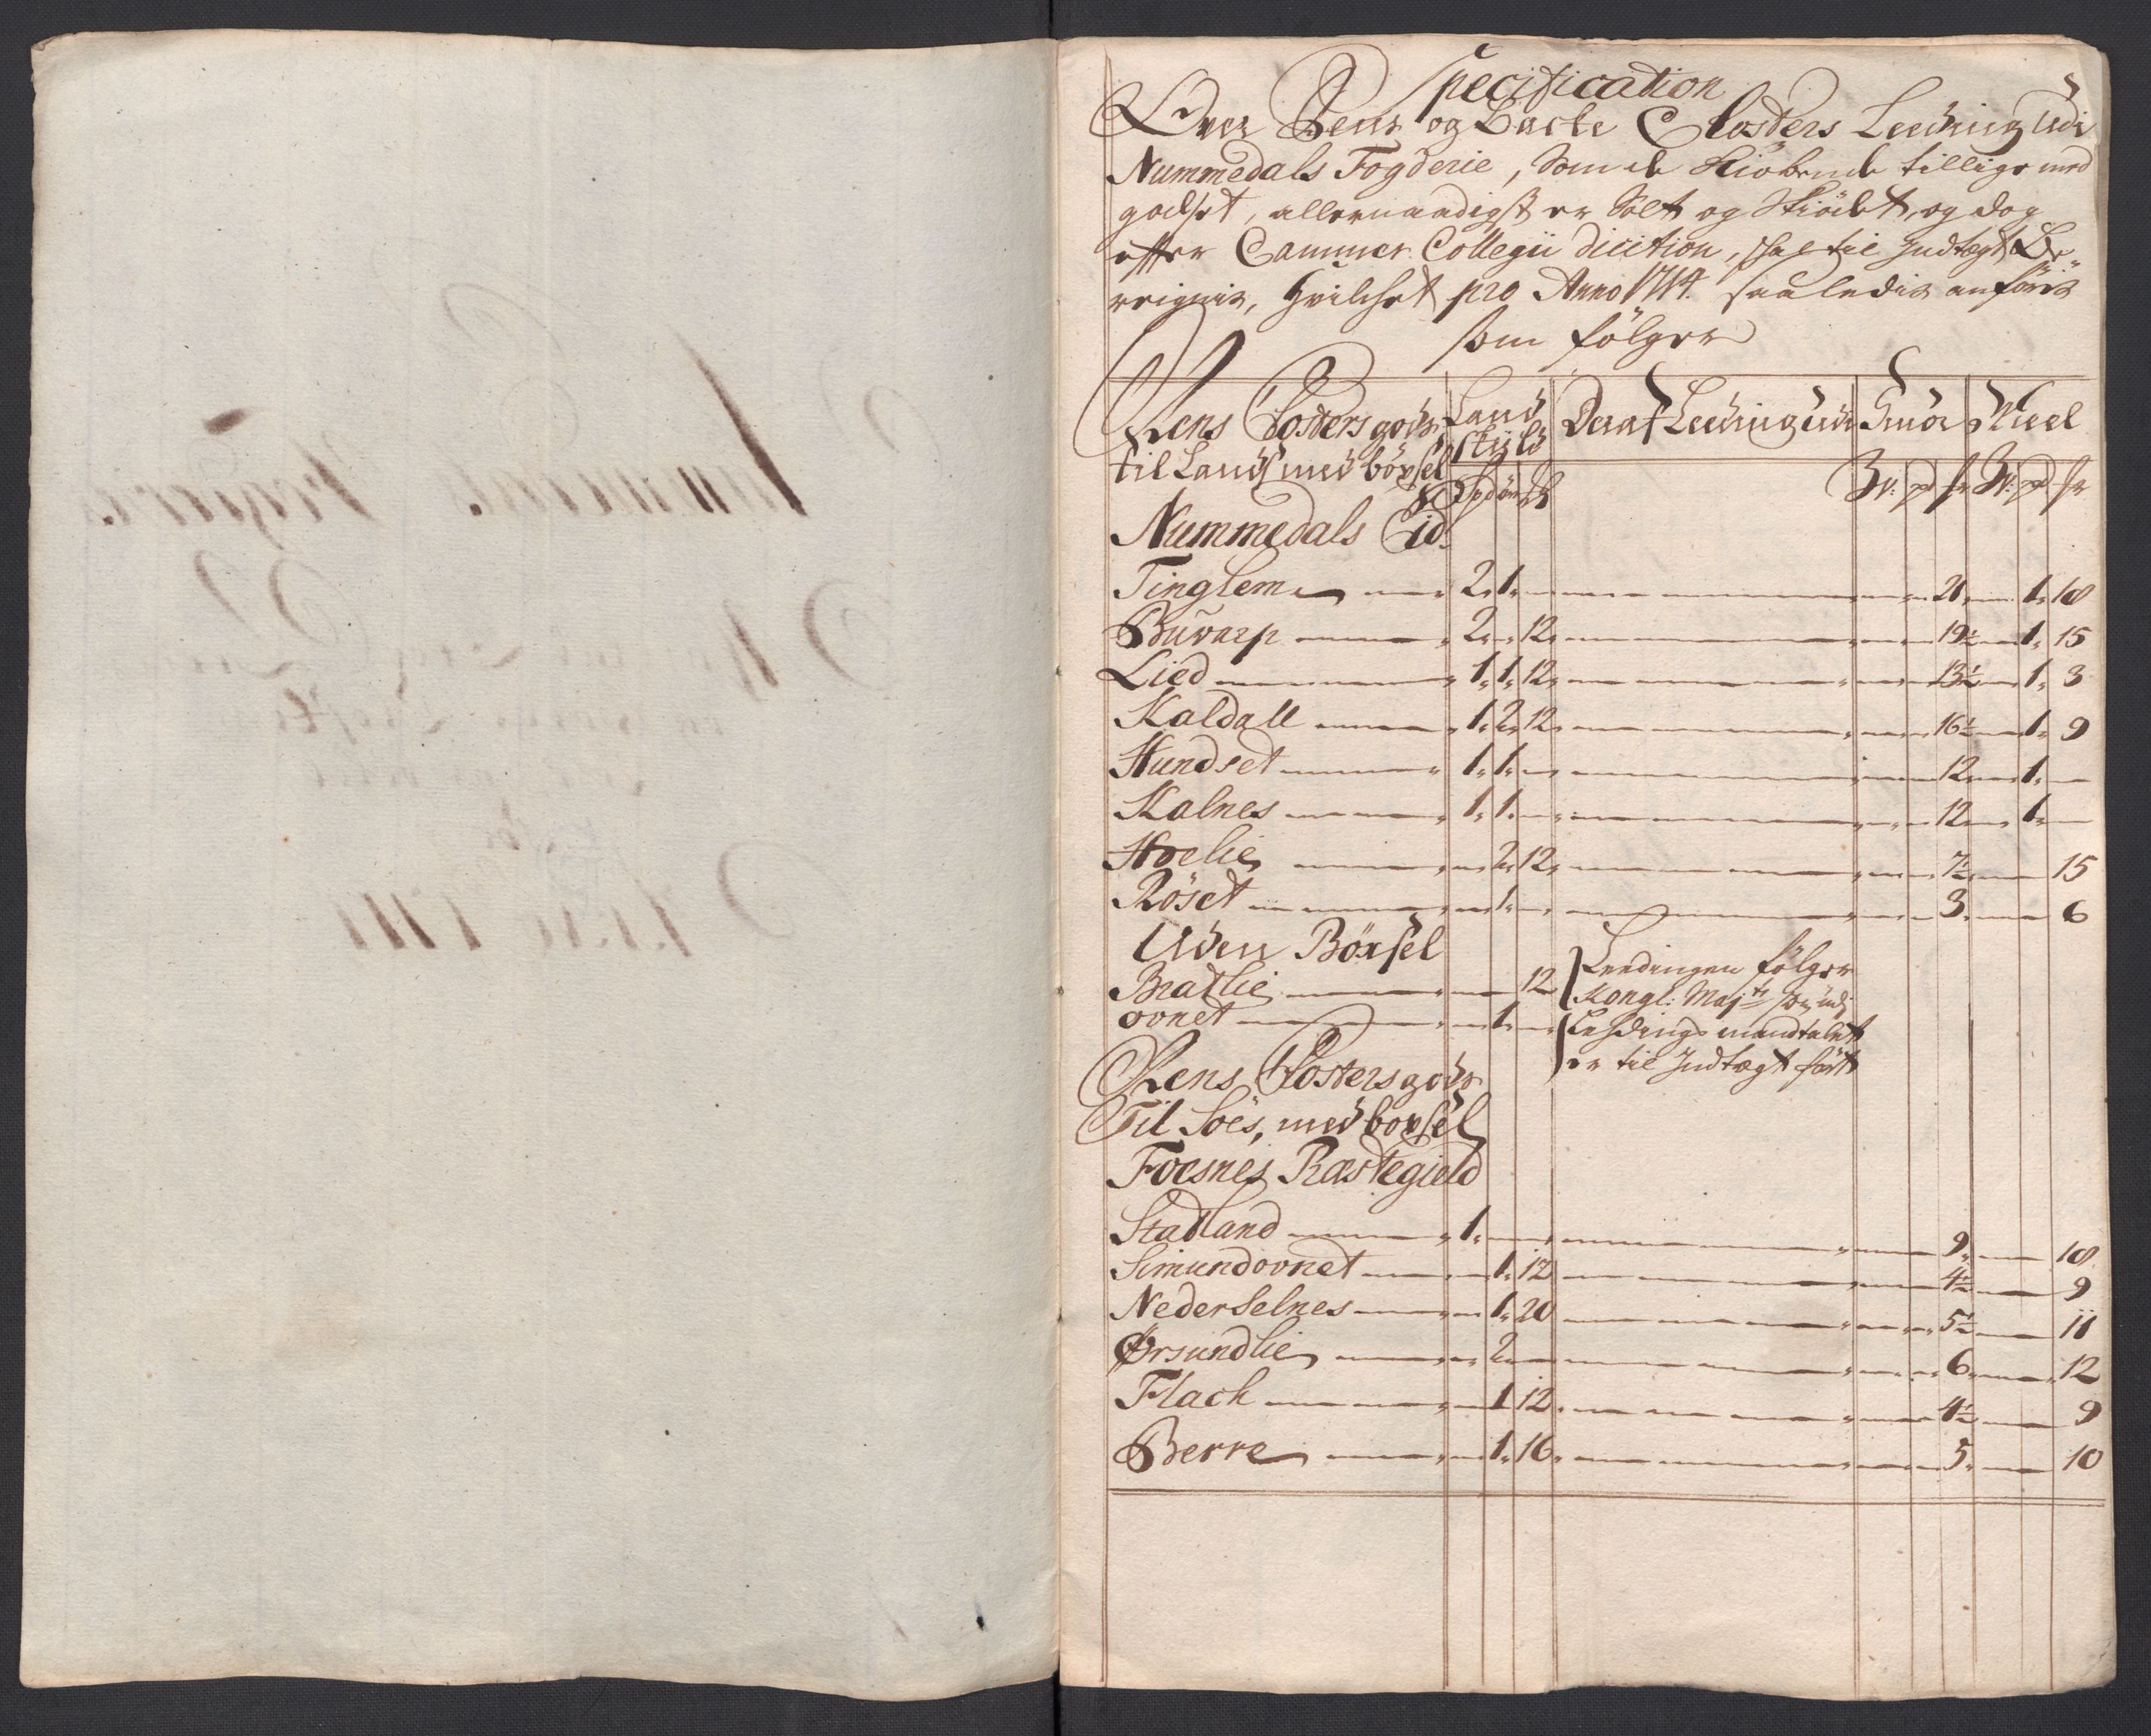 Specification
Over Rens og Backe Closters Leeding udi
Nummedals Fogderie, som de Kiöbende tillige med
godset, allernaadigst er Solt og Skiödet, og dog
efter Cammer Collegii dicition, skal til Indtegt Be-
reignis, hvilchet pro Anno 1714. saaledis anföris
som fölger
Rens Closters gods Land Deraf Leeding udi Smör Meel
til Lands med böxsel skyld
Sp ör V: pd V: pd
Nummedals Eid
Tinglem 2. 1. 21. 1. 18
Buvarp 2. 12. 19½ 1. 15
Lied 1. 1. 12. 13½ 1. 3
Kaldall 1. 2. 12. 16½ 1. 9
Hundset 1. 1. 12. 1.
Kalnes 1. 1. 12. 1.
Hoelie 2. 12. 7½ 15
Röset 1. 3. 6
Uden Böxsel
Bratlie 12 Leedingen fölger
Kongl: Maj.ts
ovnet 1. Leedings mandtalet
er til Indtegt fört
Rens Closters gods
Til Söes, med boxsel
Foesnes Præstegield
Statland 1. 9. 18.
Simundovnet 1. 12 4½ 9
Neder Selnes 1. 20 5½ 11
Ørsundlie 2. 6. 12
Flach 1 12. 4½ 9
Berre 1. 16. 5. 10